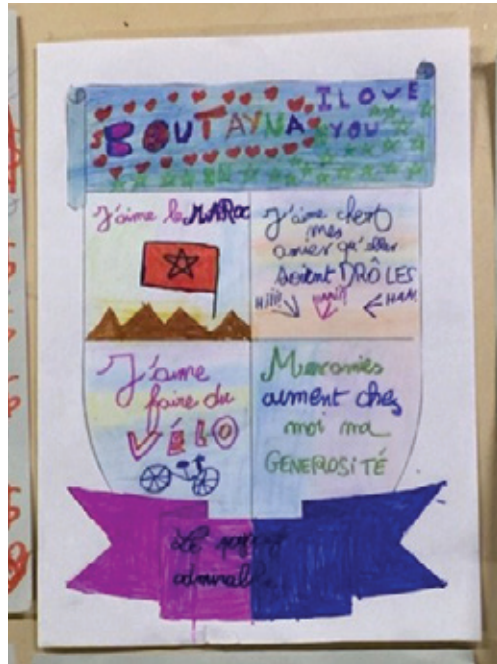 BOUTAYNA
I LOVE
YOU
J'aime le MAROC
J'aime chez
mes
amies qu'elles
soient DRÔLES
J'aime
faire du
VÉLO
Mes amies
aiment chez
moi ma
GENEROSITÉ
Le
admirable